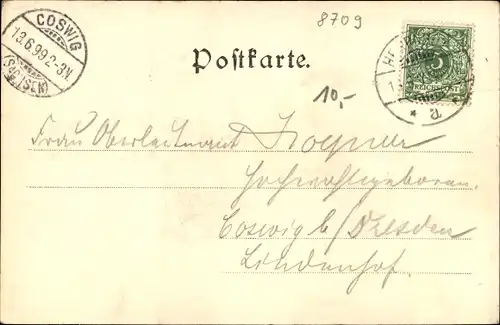 8709
COSWIG
13.6.99.2-3N.
(SACHSEN)
5
REICHSPOST
* a
Postkarte.
10,-
Frau Oberleutnant
Hochwohlgeboren
Coswig b/Dresden
Lindenhof.